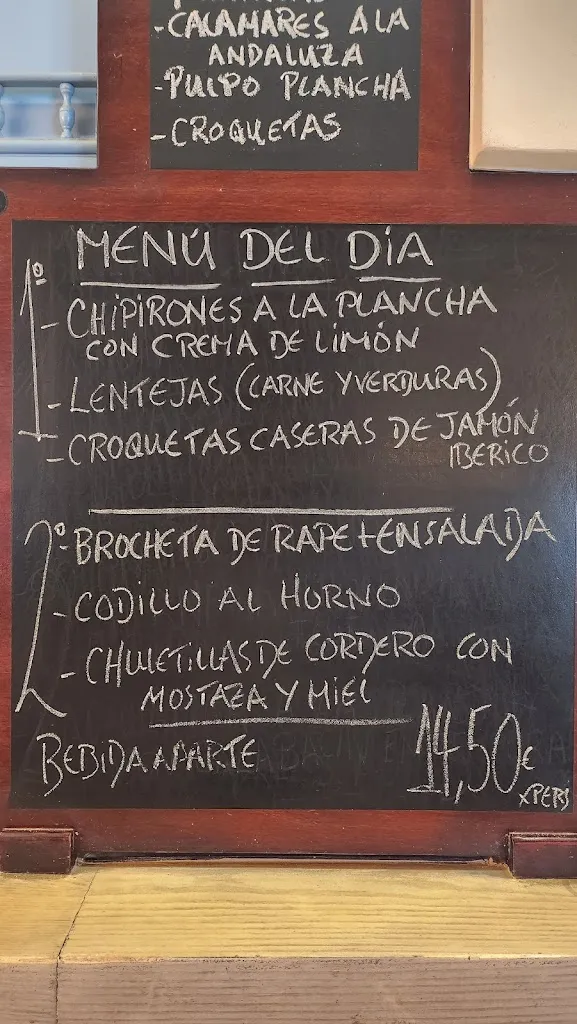 -CALAMARES A LA
ANDALUZA
-PULPO PLANCHA
-CROQUETAS
MENÚ DEL DÍA
1º
-CHIPIRONES A LA PLANCHA
CON CREMA DE LIMÓN
-LENTEJAS (CARNE Y VERDURAS)
-CROQUETAS CASERAS DE JAMÓN
IBERICO
2º
-BROCHETA DE RAPE + ENSALADA
-CODILLO AL HORNO
-CHULETILLAS DE CORDERO CON
MOSTAZA Y MIEL
BEBIDA APARTE
14,50€
x PERS